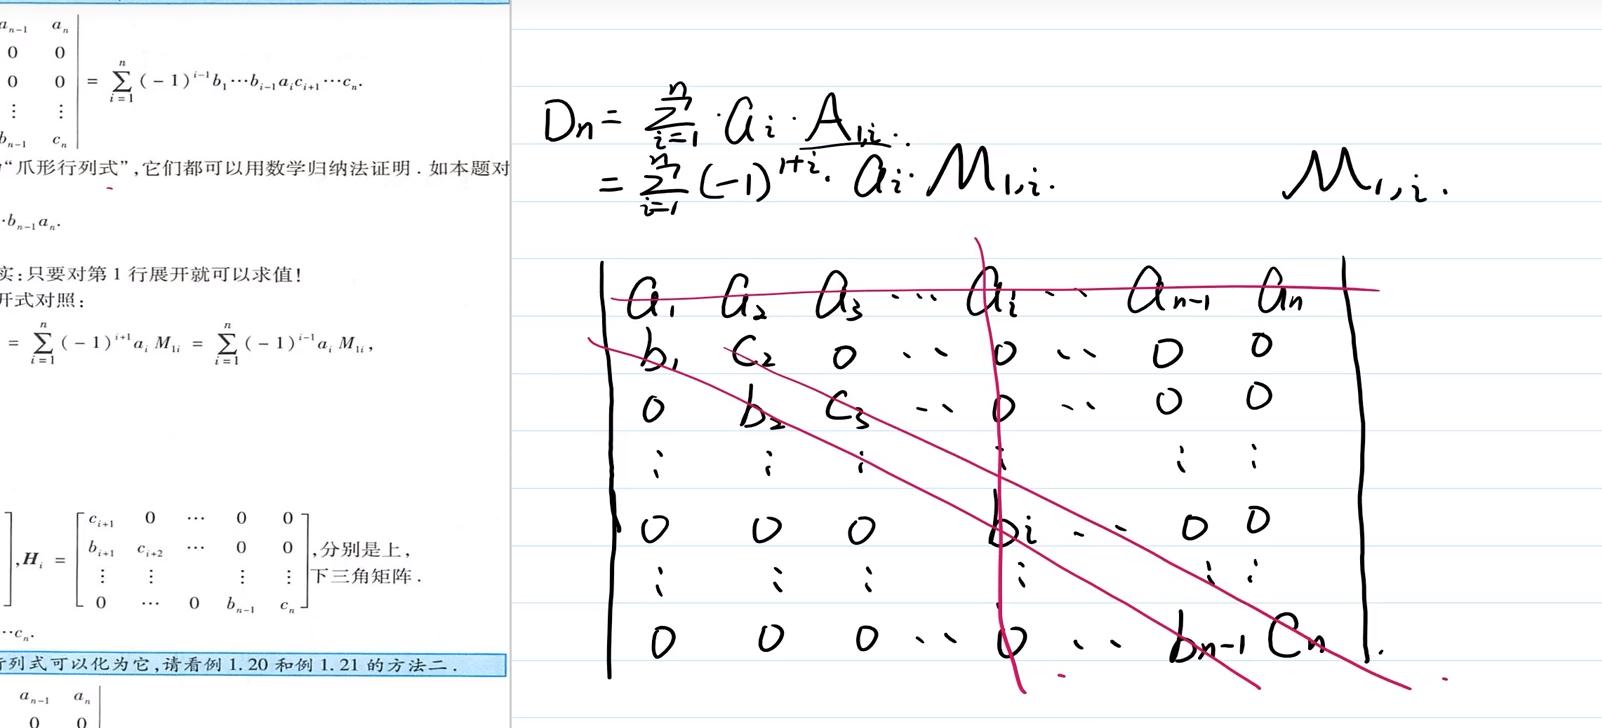 a_{n-1} a_n
0 0
0 0
⋮ ⋮
b_{n-1} c_n
= \sum_{i=1}^{n} (-1)^{i-1} b_1 ⋯ b_{i-1} a_i c_{i+1} ⋯ c_n.
“爪形行列式”,它们都可以用数学归纳法证明.如本题对
·b_{n-1} a_n.
实:只要对第 1 行展开就可以求值!
开式对照:
= \sum_{i=1}^{n} (-1)^{i+1} a_i M_{1i} = \sum_{i=1}^{n} (-1)^{i-1} a_i M_{1i},
, H_i = [
c_{i+1} 0 ⋯ 0 0
b_{i+1} c_{i+2} ⋯ 0 0
⋮ ⋮ ⋮ ⋮
0 ⋯ 0 b_{n-1} c_n
] ,分别是上,
下三角矩阵.
⋯c_n.
行列式可以化为它,请看例 1.20 和例 1.21 的方法二.
a_{n-1} a_n
0 0
D_n = \sum_{i=1}^{n} · a_i · A_{1,i}.
= \sum_{i=1}^{n} (-1)^{1+i} · a_i · M_{1,i}.
M_{1,i}.
a_1 a_2 a_3 ⋯ a_i ·· a_{n-1} a_n
b_1 c_2 0 ·· 0 ·· 0 0
0 b_2 c_3 ·· 0 ·· 0 0
⋮ ⋮ ⋮ ⋮ ⋮ ⋮
0 0 0 b_i ·· 0 0
⋮ ⋮ ⋮ ⋮ ⋮ ⋮
0 0 0 ·· 0 ·· b_{n-1} c_n